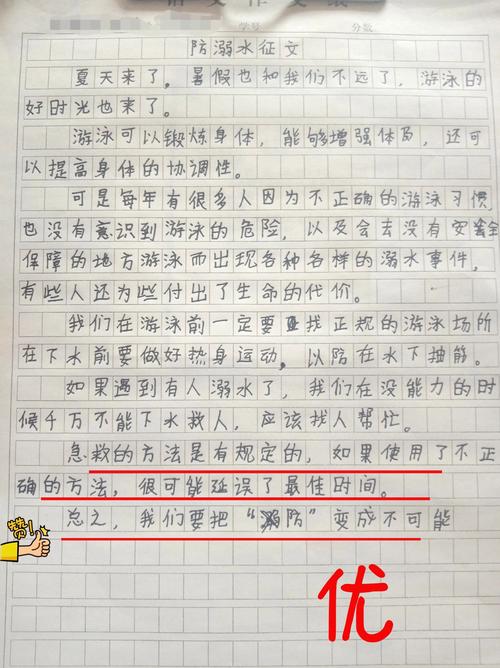 学号
分数
防溺水征文
夏天来了。暑假也和我们不远了，游泳的
好时光也来了。
游泳可以锻炼身体，能够增强体质，还可
以提高身体的协调性。
可是每年有很多人因为不正确的游泳习惯，
也没有意识到游泳的危险，以及会去没有安全
保障的地方游泳而出现各种各样的溺水事件，
有些人还为些付出了生命的代价。
我们在游泳前一定要找正规的游泳场所
在下水前要做好热身运动，以防在水下抽筋。
如果遇到有人溺水了，我们在没能力的时
候千万不能下水救人，应该找人帮忙。
急救的方法是有规定的，如果使用了不正
确的方法，很可能延误了最佳时间。
总之，我们要把“防”变成不可能
赞!
优